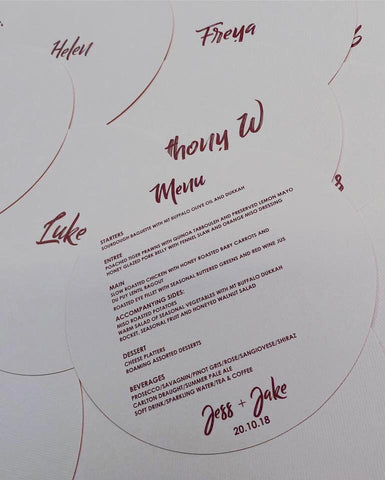 Helen
Freya
Luke
thony W
Menu
STARTERS
SOURDOUGH BAGUETTE WITH MT BUFFALO OLIVE OIL AND DUKKAH
ENTREE
POACHED TIGER PRAWNS WITH QUINOA TABBOULEH AND PRESERVED LEMON MAYO
HONEY GLAZED PORK BELLY WITH FENNEL SLAW AND ORANGE MISO DRESSING
MAIN
SLOW ROASTED CHICKEN WITH HONEY ROASTED BABY CARROTS AND
DU PUY LENTIL RAGOUT
ROASTED EYE FILLET WITH SEASONAL BUTTERED GREENS AND RED WINE JUS
ACCOMPANYING SIDES:
MISO ROASTED POTATOES
WARM SALAD OF SEASONAL VEGETABLES WITH MT BUFFALO DUKKAH
ROCKET, SEASONAL FRUIT AND HONEYED WALNUT SALAD
DESSERT
CHEESE PLATTERS
ROAMING ASSORTED DESSERTS
BEVERAGES
PROSECCO/SAVAGNIN/PINOT GRIS/ROSE/SANGIOVESE/SHIRAZ
CARLTON DRAUGHT/SUMMER PALE ALE
SOFT DRINK/SPARKLING WATER/TEA & COFFEE
Jess + Jake
20.10.18